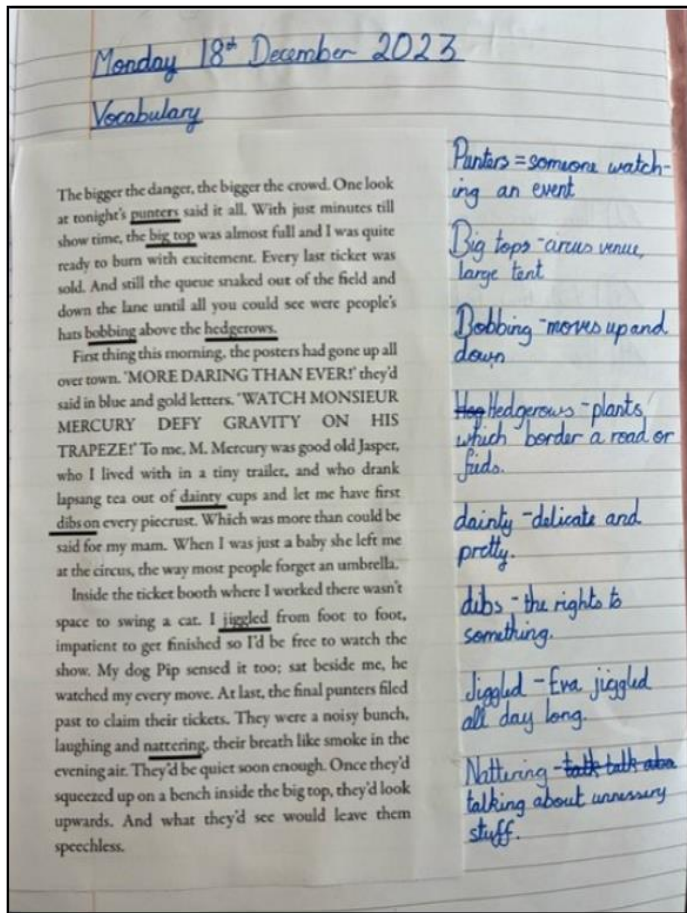 Monday 18th December 2023
Vocabulary
The bigger the danger, the bigger the crowd. One look
at tonight's punters said it all. With just minutes till
show time, the big top was almost full and I was quite
ready to burn with excitement. Every last ticket was
sold. And still the queue snaked out of the field and
down the lane until all you could see were people's
hats bobbing above the hedgerows.
First thing this morning, the posters had gone up all
over town. 'MORE DARING THAN EVER!' they'd
said in blue and gold letters. 'WATCH MONSIEUR
MERCURY DEFY GRAVITY ON HIS
TRAPEZE!' To me, M. Mercury was good old Jasper,
who I lived with in a tiny trailer, and who drank
lapsang tea out of dainty cups and let me have first
dibs on every piecrust. Which was more than could be
said for my mam. When I was just a baby she left me
at the circus, the way most people forget an umbrella.
Inside the ticket booth where I worked there wasn't
space to swing a cat. I jiggled from foot to foot,
impatient to get finished so I'd be free to watch the
show. My dog Pip sensed it too; sat beside me, he
watched my every move. At last, the final punters filed
past to claim their tickets. They were a noisy bunch,
laughing and nattering, their breath like smoke in the
evening air. They'd be quiet soon enough. Once they'd
squeezed up on a bench inside the big top, they'd look
upwards. And what they'd see would leave them
speechless.
Punters = someone watch-
ing an event
Big tops - circus venue,
large tent
Bobbing - moves up and
down
Hedgerows - plants
which border a road or
fields.
dainty - delicate and
pretty.
dibs - the rights to
something.
Jiggled - Eva jiggled
all day long.
Nattering - talk talk
talking about unnessery
stuff.